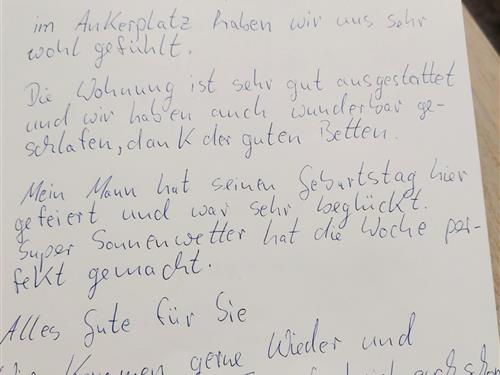 im Ankerplatz haben wir uns sehr
wohl gefühlt.
Die Wohnung ist sehr gut ausgestattet
und wir haben auch wunderbar ge-
schlafen, dank der guten Betten.
Mein Mann hat seinen Geburtstag hier
gefeiert und war sehr beglückt.
Super Sonnenwetter hat die Woche per-
fekt gemacht.
Alles Gute für Sie
Kommen gerne Wieder und